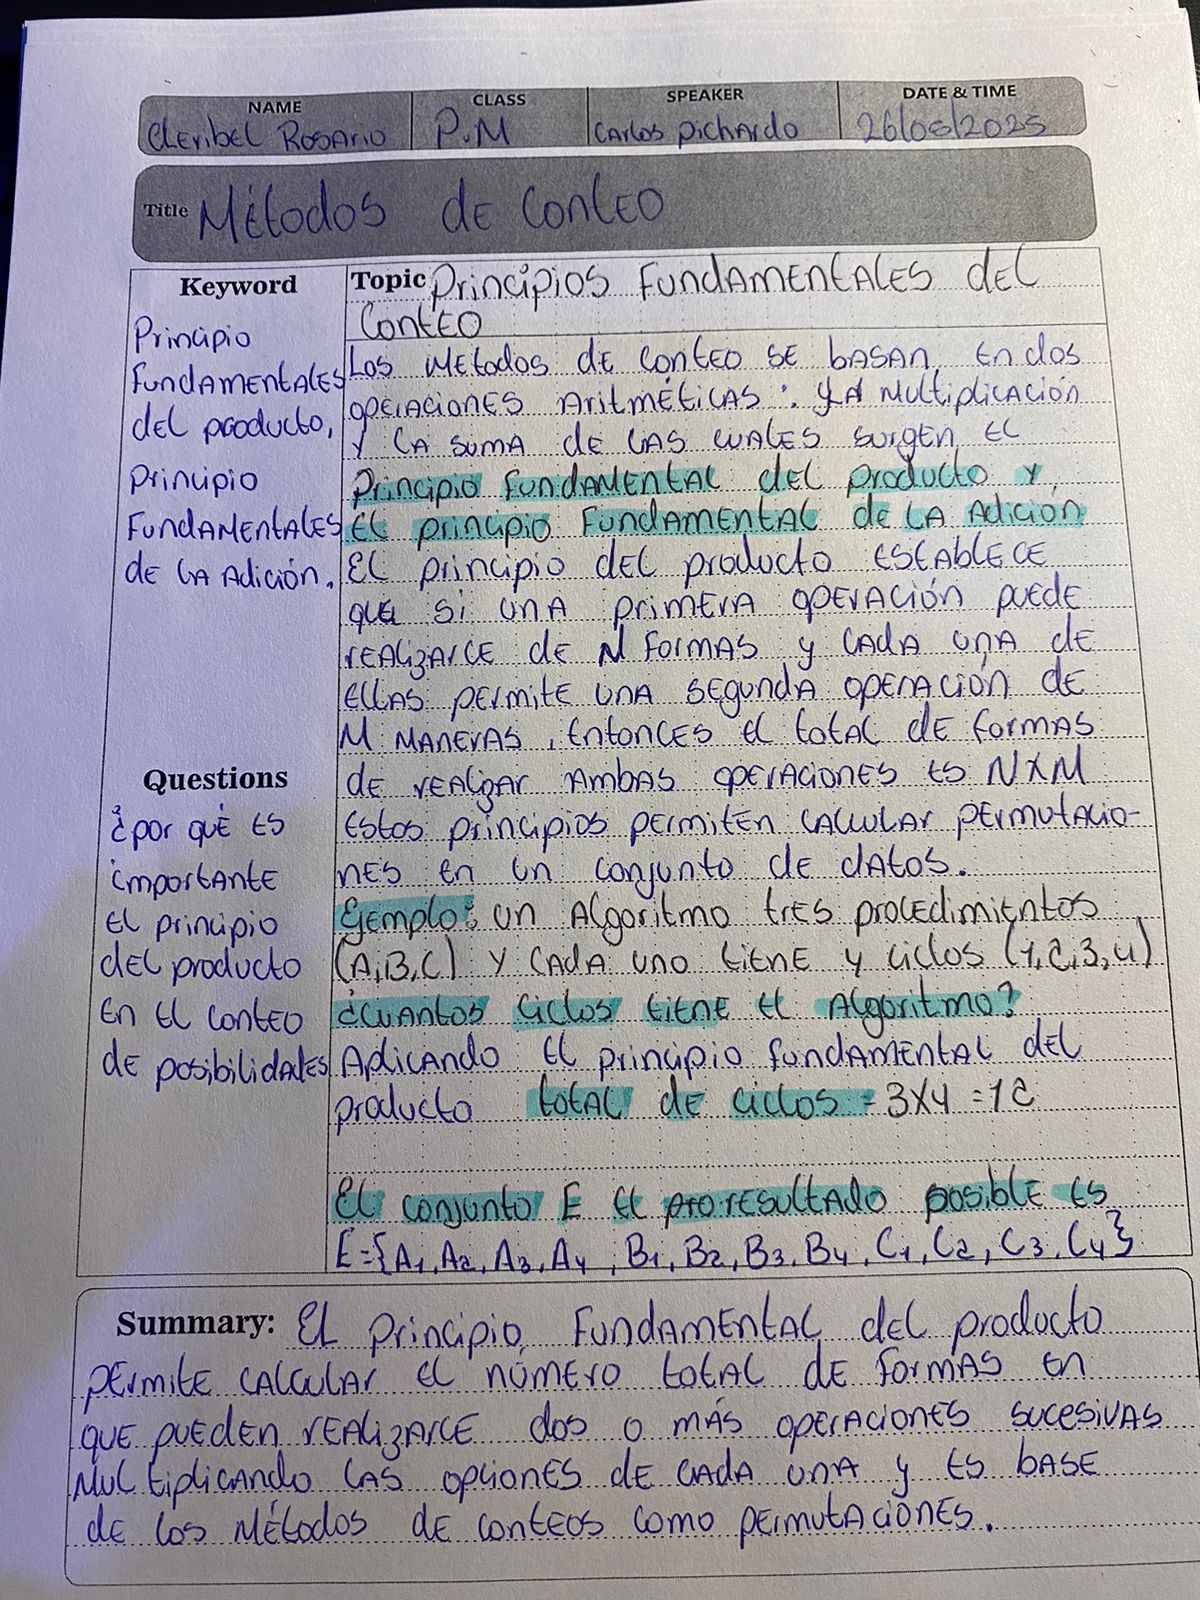 NAME CLASS SPEAKER DATE & TIME
Cleribel Rosario P.M Carlos Pichardo 26/05/2025
Title Métodos de Conteo
Keyword
Principio
Fundamentales
del producto,
Principio
Fundamentales
de la Adición.
Questions
¿por qué es
importante
el principio
del producto
en el conteo
de posibilidades
Topic Principios Fundamentales del
Conteo
Los Metodos de conteo se basan en dos
operaciones Aritméticas: y la Multiplicación
y la suma de las cuales surgen el
Principio fundamental del producto y
el principio Fundamental de la Adición
El principio del producto establece
que si una primera operación puede
realizarce de N formas y cada una de
ellas permite una segunda operación de
M maneras, entonces el total de formas
de realizar ambas operaciones es NXM
Estos principios permiten calcular permutacio-
nes en un conjunto de datos.
Ejemplo: un Algoritmo tres procedimientos
(A,B,C) y cada uno tiene 4 ciclos (1,2,3,4)
¿Cuantos ciclos tiene el Algoritmo?
Aplicando el principio fundamental del
producto total de ciclos = 3X4 = 12
El conjunto E el pro resultado posible es
E={A1, A2, A3, A4, B1, B2, B3, B4, C1, C2, C3, C4}
Summary: El principio Fundamental del producto
permite calcular el número total de formas en
que pueden realizarce dos o más operaciones sucesivas
Multiplicando las opciones de cada una y es base
de los Métodos de conteos como permutaciones.